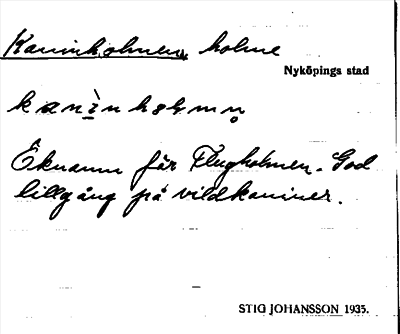 Kaninholmen, holme
Nyköpings stad
kanìnhɷlmn̥
Öknamn får Flugholmen. God
tillgång på vildkaniner.
STIG JOHANSSON 1935.